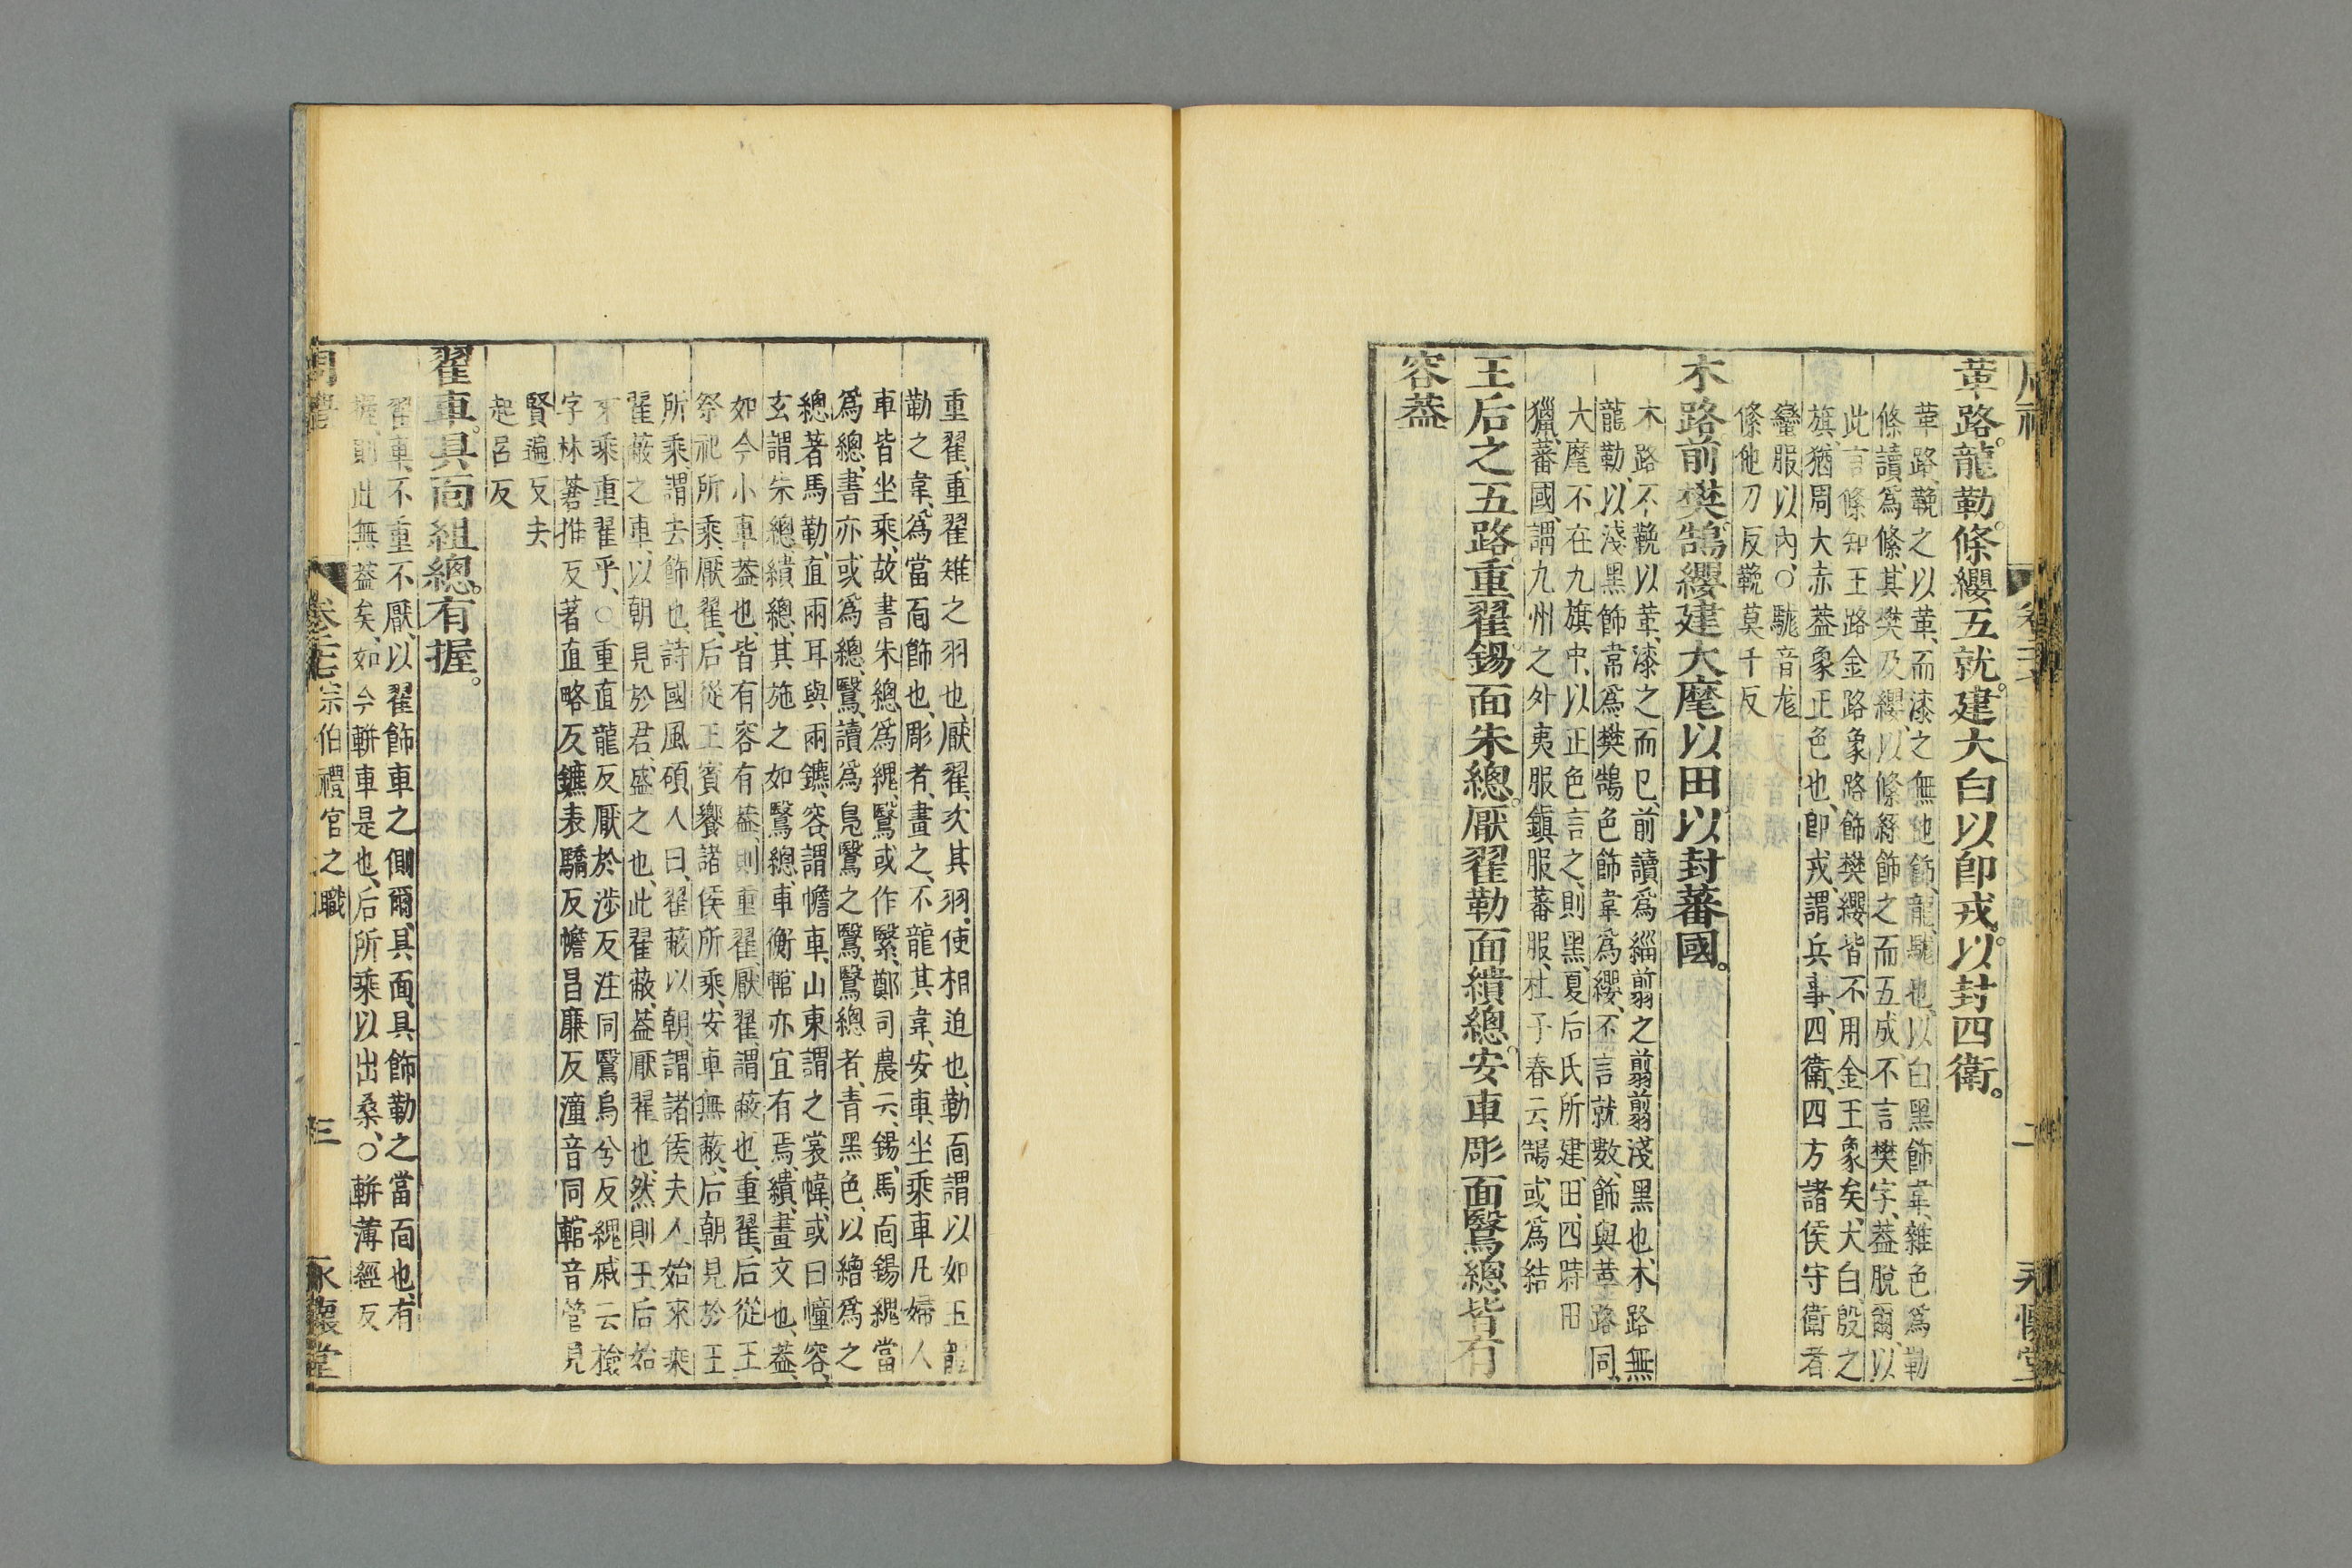 革路。龍勒。條纓五就。建大白以卽戎。以封四衛。
革路、鞔之以革、而漆之無他飾、龍、駹也、以白黑飾韋、雜色爲勒
條讀爲絛、其樊及纓、以絛絲飾之而五成、不言樊字、蓋脫爾、以
此言絛、知玉路金路象路飾樊纓皆不用金玉象矣、大白、殷之
旗、猶周大赤、蓋象正色也、卽戎、謂兵事、四衛、四方諸侯守衛者
蠻服以內、○駹音尨
條他刀反鞔莫干反
木路前樊。鵠纓建大麾以田以封蕃國。
木路不鞔以革、漆之而已、前讀爲緇翦之翦翦淺黑也、木路無
龍勒、以淺黑飾韋爲樊、鵠色飾韋爲纓、不言就數、飾與革路同、
大麾不在九旗中、以正色言之、則黑、夏后氏所建、田、四時田
獵、蕃國、謂九州之外夷服鎮服蕃服、杜子春云、鵠、或爲結
王后之五路。重翟鍚面朱總。厭翟勒面繢總。安車彫面鷖總皆有
容蓋
重翟、重翟雉之羽也、厭翟、次其羽、使相迫也、勒面謂以如王龍
勒之韋、爲當面飾也、彫者、畫之、不龍其韋、安車、坐乘車、凡婦人
車皆坐乘、故書朱總爲繉、鷖或作繄、鄭司農云、鍚、馬面鍚繉當
爲總、書亦或爲總、鷖、讀爲鳧鷖之鷖、鷖總者、青黑色、以繒爲之
總著馬勒、直兩耳與兩鑣、容謂幨車、山東謂之裳幃、或曰幢容、
玄謂朱總繢總、其施之如鷖總、車衡輨亦宜有焉、繢、畫文也、蓋、
如今小車蓋也、皆有容有蓋、則重翟、厭翟、謂蔽也、重翟、后從王
祭祀所乘、厭翟、后從王賓饗諸侯所乘、安車無蔽、后朝見於王
所乘、謂去飾也、詩國風碩人曰、翟蔽以朝、謂諸侯夫人始來乘
翟蔽之車、以朝見於君、盛之也、此翟蔽、蓋厭翟也、然則王后始
來乘重翟乎、○重直龍反厭於涉反注同鷖烏兮反繉戚云檢
字林蒼推反著直略反鑣表驕反幨昌廉反潼音同輨音管見
賢遍反去
起呂反
翟車。具面組總。有握。
翟車、不重不厭、以翟飾車之側爾、具面、具飾勒之當面也、有
握、則此無蓋矣、如今軿車是也、后所乘以出桑、○軿薄經反
周禮 卷二十七 宗伯禮官之職 三 永懷堂